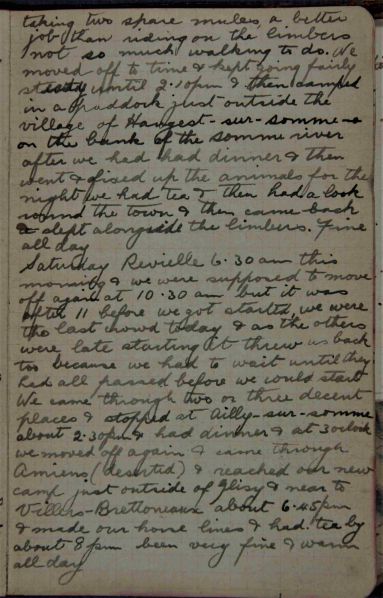 taking two spare mules, a better
job than riding on the limbers
not so much walking to do. We
moved off to time & kept going fairly
steady until 2.10pm & then camped
in a paddock just outside the
village of Hangest-sur-somme
on the bank of the somme river
after we had had dinner & then
went & fixed up the animals for the
night we had tea & then had a look
round the town & then came back
& slept alongside the limbers. fine
all day
Saturday Revielle 6.30 am this
morning & we were supposed to move
off again at 10.30 am but it was
after 11 before we got started, we were
the last crowd today & as the others
were late starting it threw us back
too because we had to wait until they
had all passed before we could start
We came through two or three decent
places & stopped at Ailly-sur-somme
about 2.30pm & had dinner & at 3 oclock
we moved off again & came through
Amiens (deserted) & reached our new
camp just outside of Glisy & near to
Villers-Brettoneaux about 6.45pm
& made our horse lines & had tea by
about 8 pm been very fine & warm
all day